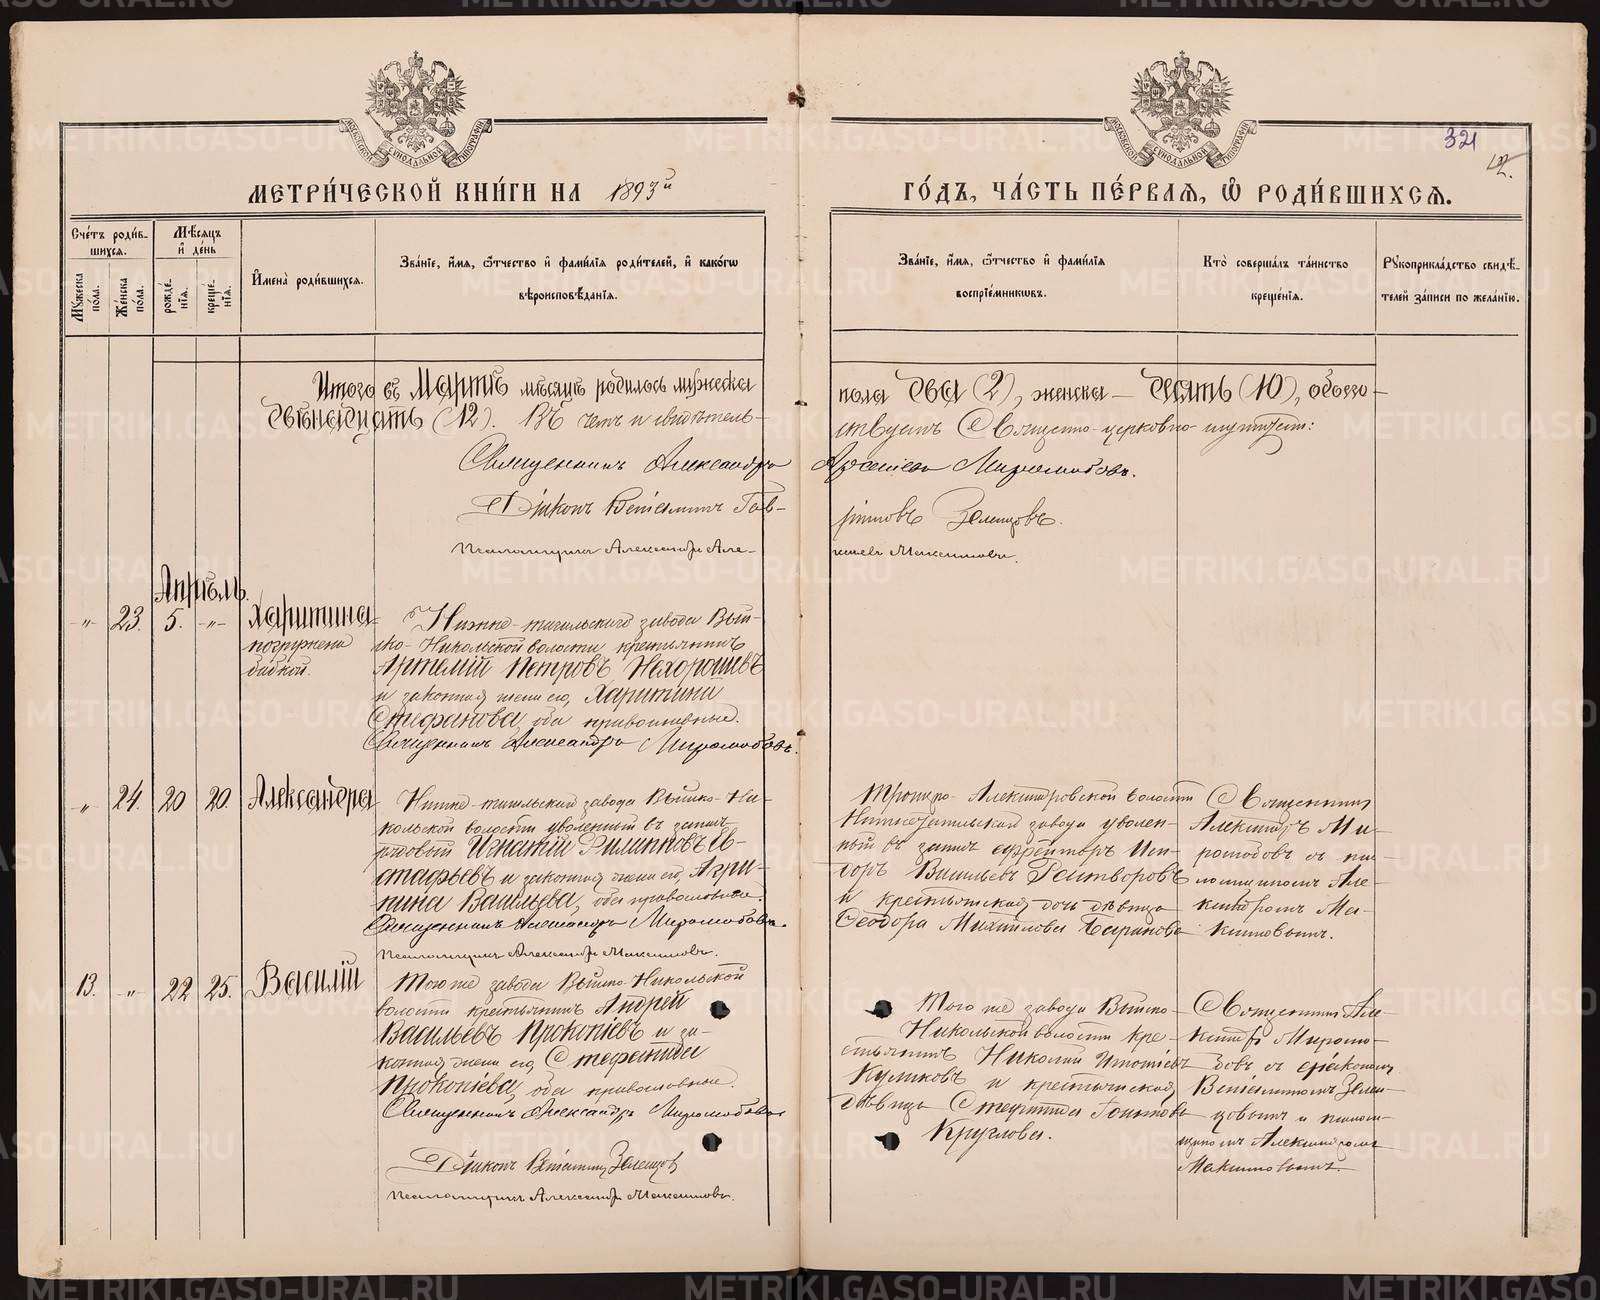 321
МЕТРИ́ЧЕСКОЙ КНИ́ГИ НА 1893й
ГО́ДЪ, ЧА́СТЬ ПЕ́РВАЯ, Ѽ РОДИ́ВШИХСЯ.
Сче́тъ роди́вшихся.
Мꙋ́жеска пола.
Же́нска по́ла.
Мѣ́сяцъ и҆ де́нь
рожде́нїя.
креще́нїя.
И҆мена̀ роди́вшихся.
Зва́нїе, и҆́мя, ѻ҆́тчество и҆ фами́лїя роди́телей, и҆ како́гѡ
вѣроисповѣ́данїя.
Зва́нїе, и҆́мя, ѻ҆́тчество и҆ фами́лїя
воспрїе́мникѡвъ.
Кто̀ соверша́лъ та́инство
креще́нїя.
Рꙋкоприкла́дство свидѣ́-
телей за́писи по жела́нїю.
Итого въ Мартѣ мѣсяцѣ родилось мужеска
двѣнадцать (12). Въ чемъ и свидѣтель-
Священникъ Александръ
Дiаконъ Венiаминъ Гав-
Псаломщикъ Александръ Але-
пола два (2), женска — десять (10), обоего —
ствуетъ Священно-церковно-
Арсенiевъ Миролюбовъ.
рiиловъ Зеленцовъ.
ксѣевъ Максимовъ.
Апрѣль.
-„- 23. 5. -„-
Харитина
погружена
бабкой.
Нижне-тагильскаго завода Вый-
ско-Никольской волости крестьянинъ
Артемiй Петровъ Нехорошевъ
и законная жена его, Харитина
Стефанова, оба православные.
Священникъ Александръ Миролюбовъ.
„ 24. 20 20.
Александра
Нижне-тагильскаго завода Выйско-Ни-
кольской волости уволенный въ запасъ
рядовой Игнатiй Филипповъ Ев-
стафьевъ и законная жена его, Агри-
пина Васильева, оба православные.
Священникъ Александръ Миролюбовъ.
Псаломщикъ Александръ Максимовъ.
Троицко-Александровской волости
Нижнетагильскаго завода уволен-
ный въ запасъ ефрейторъ Иси-
доръ Васильевъ
и крестьянская дочь дѣвица
Ѳеодора Михайлова Баранова
Священникъ
Александръ Ми-
ролюбовъ съ пса-
ломщикомъ Але-
ксандромъ Ма-
ксимовымъ.
13. -„- 22 25.
Василiй
Того же завода Выйско-Никольской
волости крестьянинъ Андрей
Васильевъ Прокопiевъ и за-
конная жена его, Стефанида
Прокопiева, оба православные.
Священникъ Александръ Миролюбовъ
Дiаконъ Венiаминъ Зеленцовъ
Псаломщикъ Александръ Максимовъ.
Того же завода Выйско-
Никольской волости кре-
стьянинъ Николай Игнатiевъ
Куликовъ и крестьянская
дѣвица Стефанида
Круглова.
Священникъ Але-
ксандръ Миролю-
бовъ съ дiакономъ
Венiаминомъ Зелен-
цовымъ и псалом-
щикомъ Александромъ
Максимовымъ.
METRIKI.GASO-URAL.RU